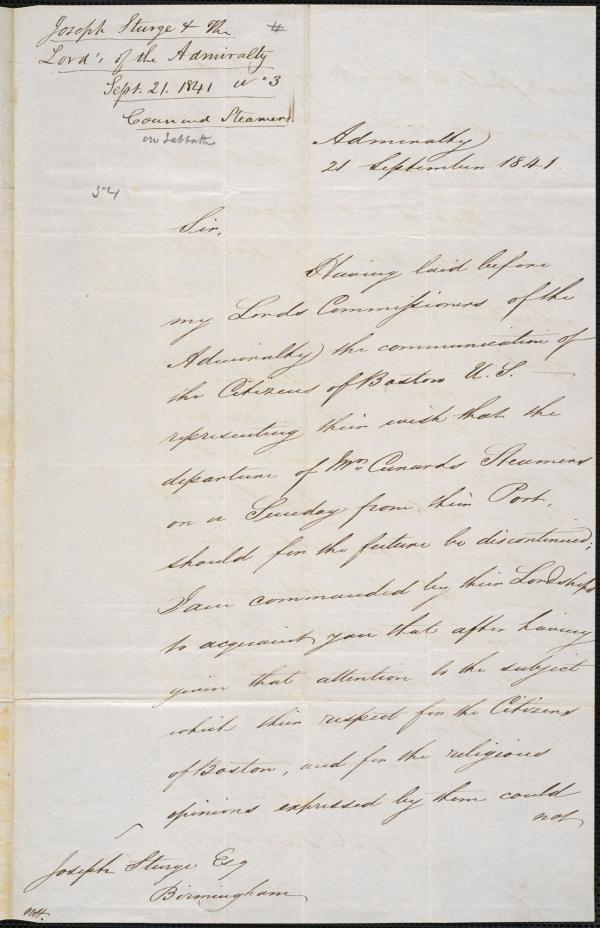 Joseph Sturge & The
Lord's of the Admiralty
Sept. 21. 1841 No 3
Cunard Steamers
on Sabbath
54
Admiralty
21 September 1841.
Sir,
Having laid before
my Lords Commissioners of the
Admiralty the communication of
the Citizens of Boston U.S. —
representing their wish that the
departure of Mr. Cunards Steamers
on a Sunday from their Port,
should for the future be discontinued;
I am commanded by their Lordships
to acquaint you that after having
given that attention to the subject
which their respect for the Citizens
of Boston, and for the religious
opinions expressed by them could
not
Joseph Sturge Esq
Birmingham